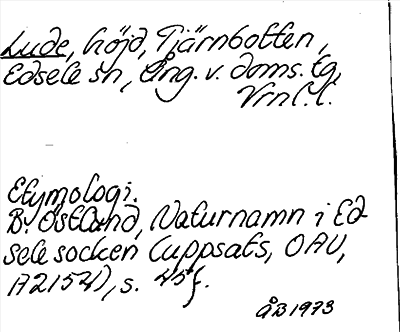 Lude, höjd, Tjärnbotten,
Edsele sn, Ång. v. doms. tg,
Vrnl. l.
Etymologi.
B. Östlund, Naturnamn i Ed-
sele socken (uppsats, OAU,
A2154), s. 45 f.
ÅB 1973